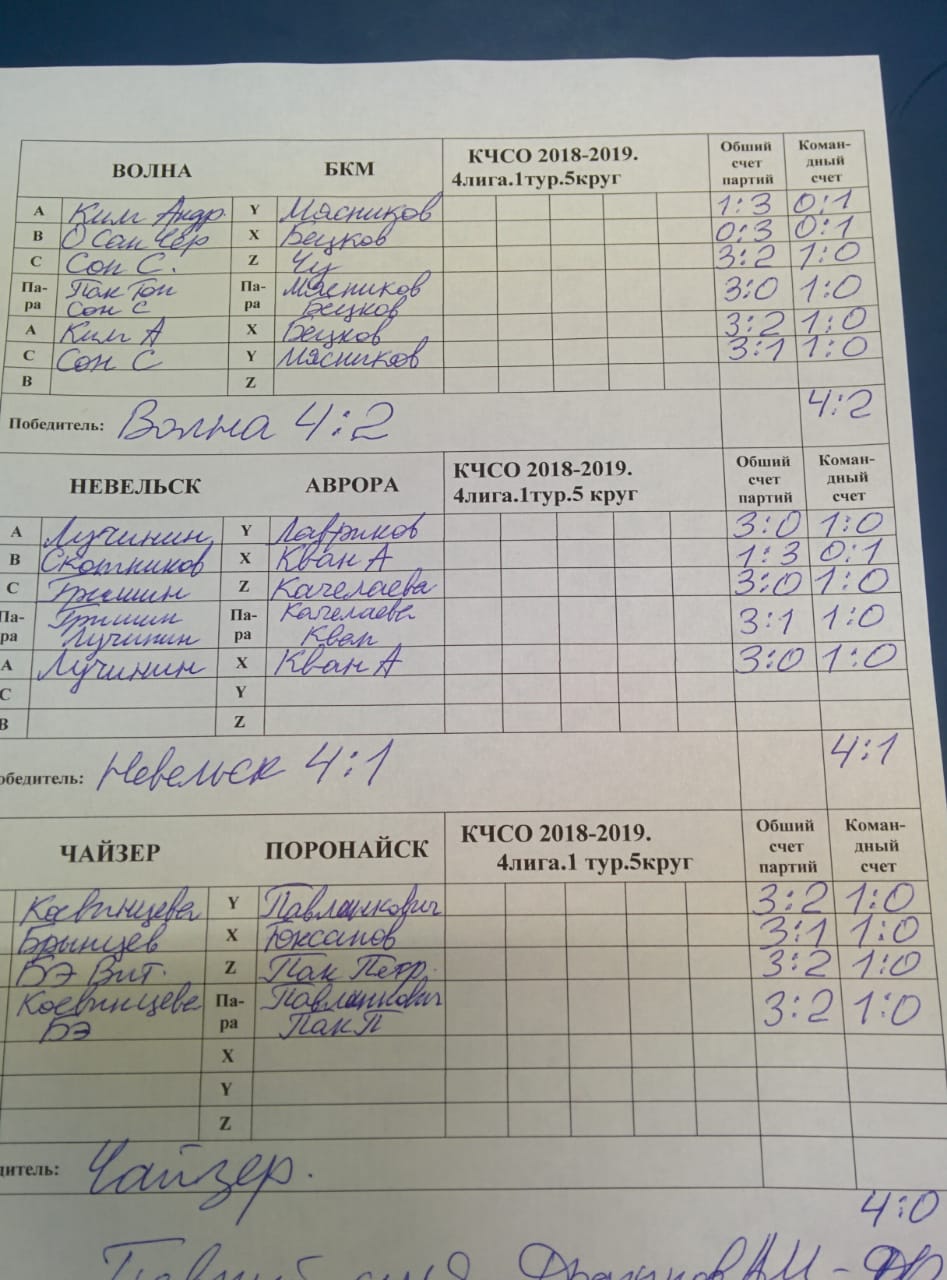 ВОЛНА БКМ КЧСО 2018-2019. Обший Коман-
4лига.1тур.5круг счет дный
партий счет
A Ким Андр. Y Мясников 1:3 0:1
B О Сан Чер X Бецков 0:3 0:1
C Сон С. Z Чу 3:2 1:0
Па- Пак Гон Па- Мясников 3:0 1:0
ра Сон С ра Бецков
A Ким А X Бецков 3:2 1:0
C Сон С Y Мясников 3:1 1:0
B Z
Победитель: Волна 4:2 4:2
НЕВЕЛЬСК АВРОРА КЧСО 2018-2019. Обший Коман-
4лига.1тур.5 круг счет дный
партий счет
A Лучинин Y Лавриков 3:0 1:0
B Скотников X Кван А 1:3 0:1
C Гришин Z Качелаева 3:0 1:0
Па- Гришин Па- Качелаева 3:1 1:0
ра Лучинин ра Кван
A Лучинин X Кван А 3:0 1:0
C Y
B Z
обедитель: Невельск 4:1 4:1
ЧАЙЗЕР ПОРОНАЙСК КЧСО 2018-2019. Обший Коман-
4лига.1 тур.5круг счет дный
партий счет
Y 3:2 1:0
Брынцев X Юксанов 3:1 1:0
БЭ Вит. Z Пак Петр. 3:2 1:0
Па- 3:2 1:0
БЭ ра Пак П
X
Y
Z
дитель: Чайзер.
4:0